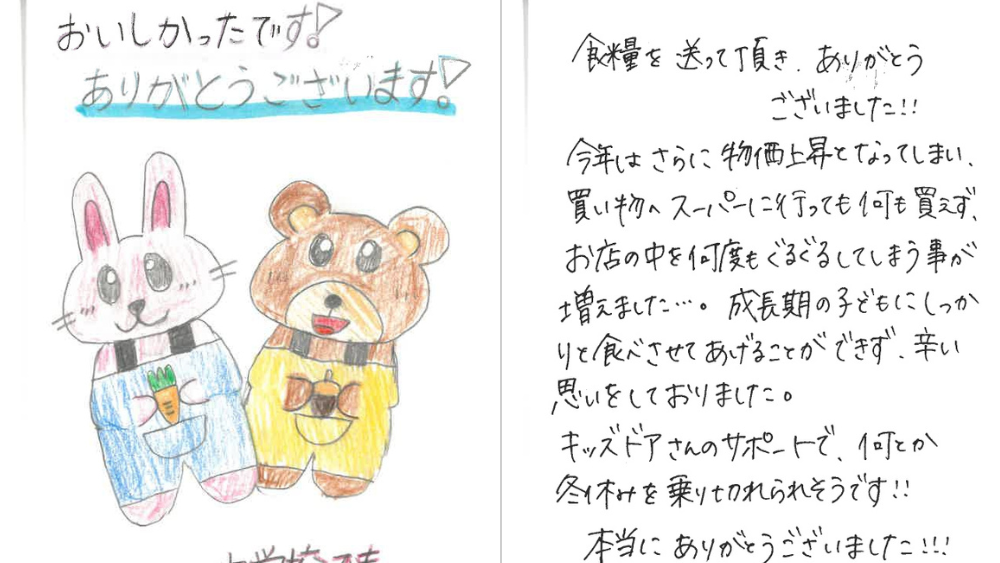 おいしかったです!
ありがとうございます!
食糧を送って頂き、ありがとう
ございました!!
今年はさらに物価上昇となってしまい、
買い物へスーパーに行っても何も買えず、
お店の中を何度もぐるぐるしてしまう事が
増えました…。成長期の子どもにしっか
りと食べさせてあげることができず、辛い
思いをしておりました。
キッズドアさんのサポートで、何とか
冬休みを乗り切れられそうです!!
本当にありがとうございました!!!